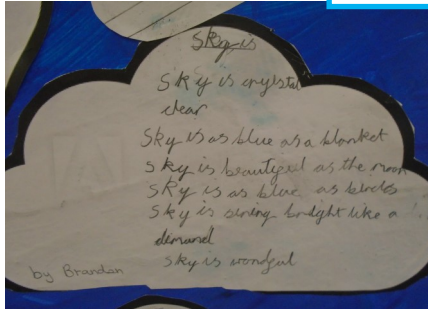 Sky is
Sky is crystal
clear
Sky is as blue as a blanket
sky is beautiful as the moon
Sky is as blue as
Sky is bright like a
demand
sky is wonderful
by Brandan